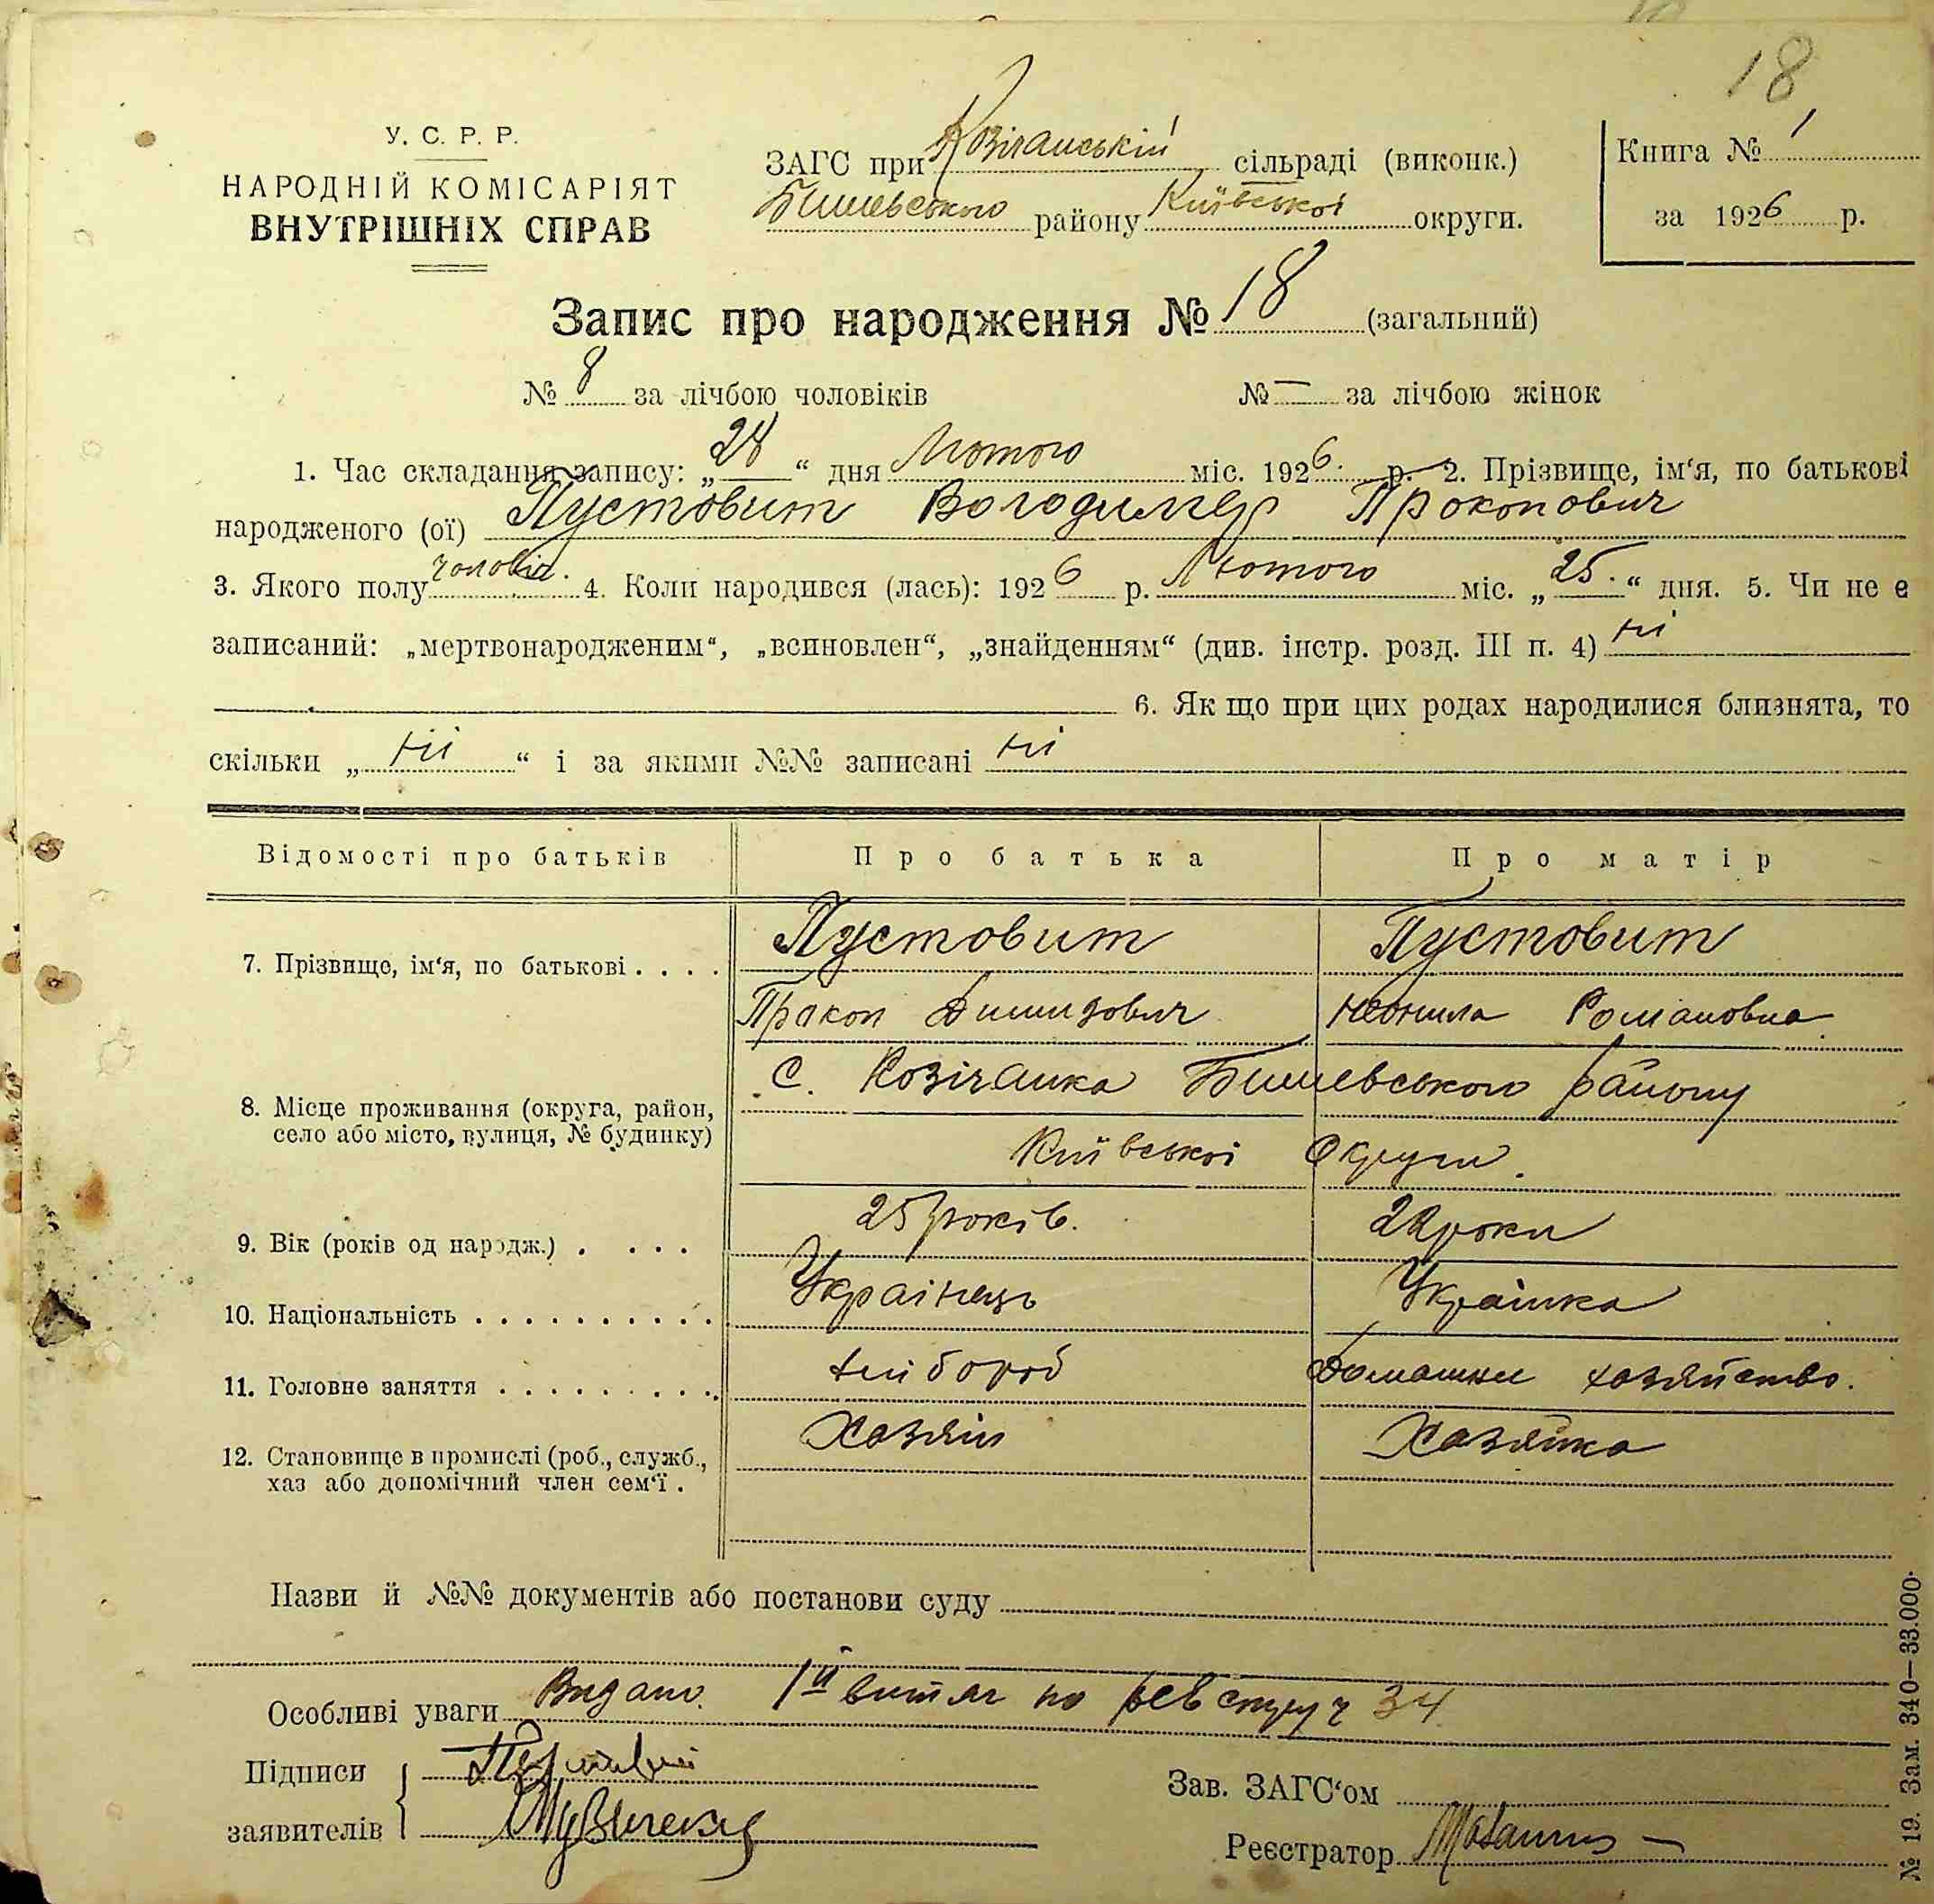 18
У. С. Р. Р.
НАРОДНІЙ КОМІСАРІЯТ
ВНУТРІШНІХ СПРАВ
ЗАГС при Козіганській сільраді (виконк.)
Бишевського району Київської округи.
Книга № 1
за 1926 р.
Запис про народження № 18 (загальний)
№ 8 за лічбою чоловіків № — за лічбою жінок
1. Час складання запису: „28“ дня Лютого міс. 1926 р. 2. Прізвище, ім‘я, по батькові
народженого (ої) Пустовит Володимер Прокопович
3. Якого полу чоловіч. 4. Коли народився (лась): 1926 р. Лютого міс. „25.“ дня. 5. Чи не є
записаний: „мертвонародженим“, „всиновлен“, „знайденням“ (див. інстр. розд. III п. 4) ні
6. Як що при цих родах народилися близнята, то
скільки „ні“ і за якими №№ записані ні
Відомості про батьків Про батька Про матір
7. Прізвище, ім‘я, по батькові . . . . Пустовит Пустовит
Пракоп Романовна
С. Козіганка Бишевського району
8. Місце проживання (округа, район,
село або місто, вулиця, № будинку)
Київської Округи.
9. Вік (років од народж.) . . . . 25 років. роки
10. Національність . . . . . . . . . . Українець Українка
11. Головне заняття . . . . . . . . . хлібороб Домашнє хазяйство.
12. Становище в промислі (роб., служб.,
хаз або допомічний член сем‘ї . Хазяїн Хазяйка
Назви й №№ документів або постанови суду
Особливі уваги Видано 1й витяг по 34
Підписи
заявителів
Зав. ЗАГС‘ом
Реєстратор
№ 19. Зам. 340—33.000.